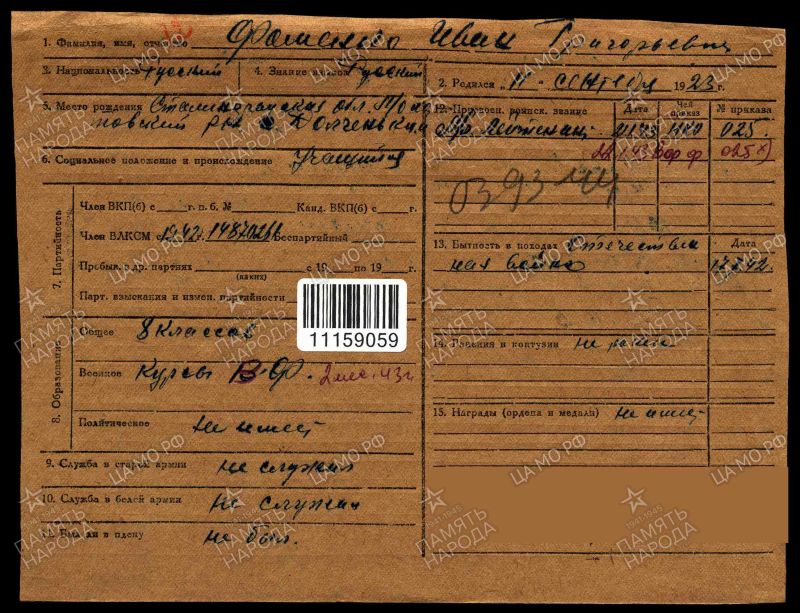 1. Фамилия, имя, отчество Фоменко Иван Григорьевич
3. Национальность Русский
4. Знание языков Русский
2. Родился „11“ сентября 1923 г.
5. Место рождения Сталинградская обл.
6. Социальное положение и происхождение Учащийся
7. Партийность
Член ВКП(б) с г. п. б. № Канд. ВКП(б) с г.
Член ВЛКСМ 1942 Беспартийный
Пребыв. в др. партиях с 19 по 19 г.
(каких)
Парт. взыскания и измен. партийности
8. Образование
Общее 8 классов
Военное Курсы В.Ф. 2 мес. 43 г
Политическое не имеет
9. Служба в старой армии не служил
10. Служба в белой армии не служил
11. Был ли в плену не был.
12. Присвоен. воинск. звание Дата Чей приказ № приказа
Мл. Лейтенант 025.
13. Бытность в походах Отечествен Дата
ная война
14. Ранения и контузии не
15. Награды (ордена и медали) не имеет
11159059
ПАМЯТЬ НАРОДА
1941-1945
ЦА МО РФ